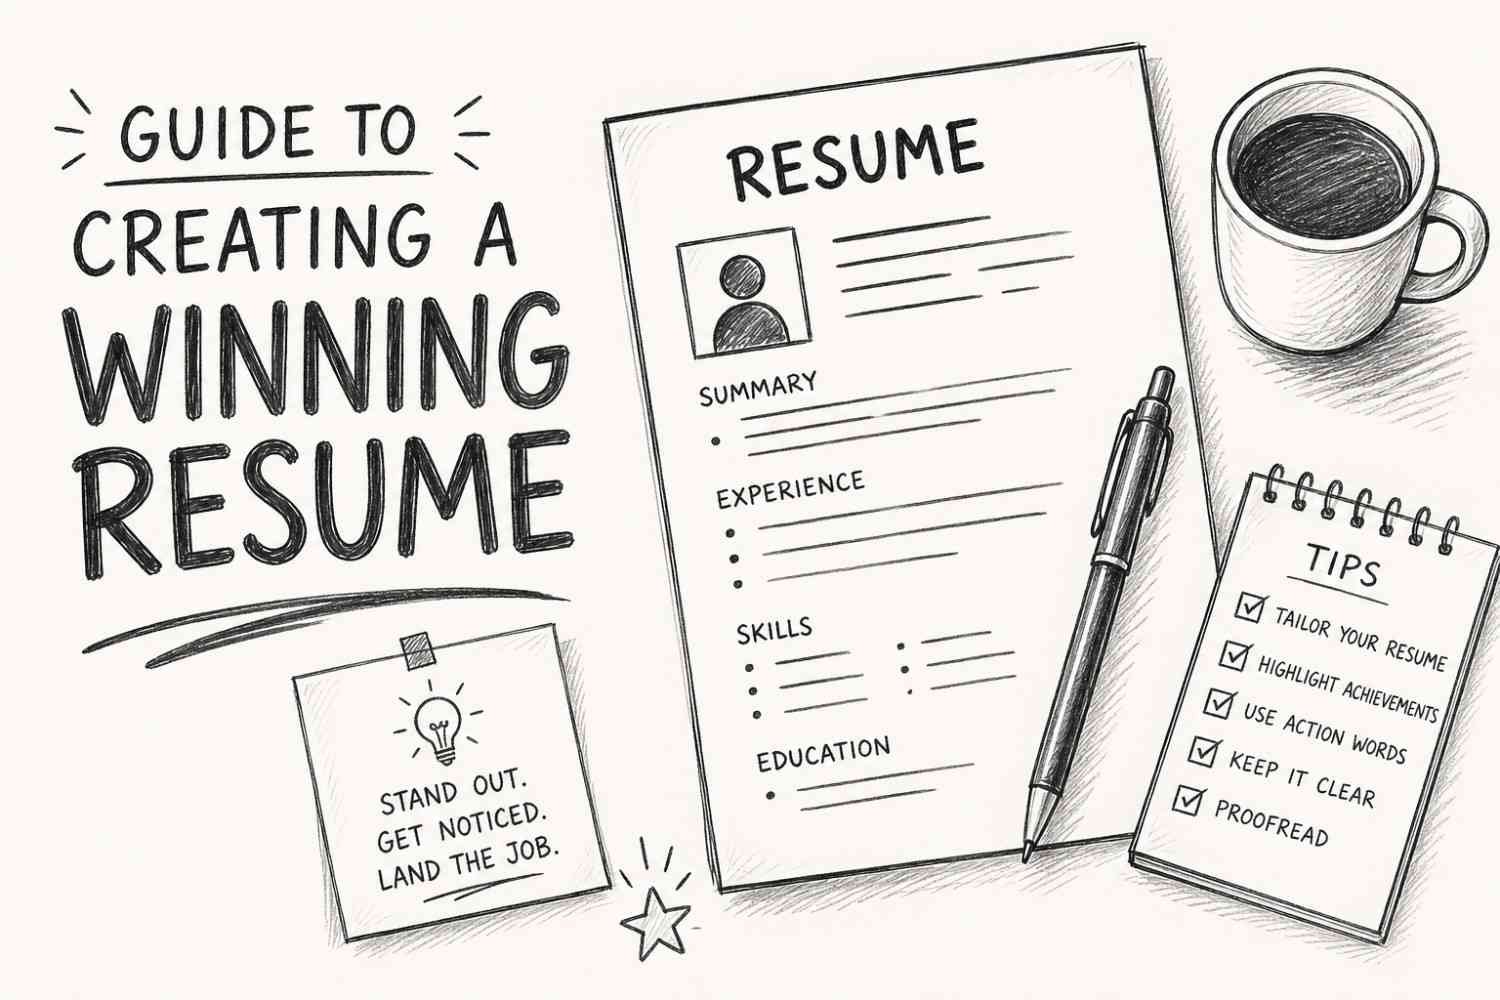 GUIDE TO
CREATING A
WINNING
RESUME
STAND OUT.
GET NOTICED.
LAND THE JOB.
RESUME
SUMMARY
EXPERIENCE
SKILLS
EDUCATION
TIPS
TAILOR YOUR RESUME
HIGHLIGHT ACHIEVEMENTS
USE ACTION WORDS
KEEP IT CLEAR
PROOFREAD